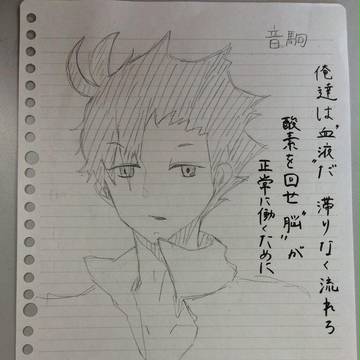 音駒
俺達は"血液"だ 滞りなく流れろ
酸素を回せ"脳"が
正常に働くために